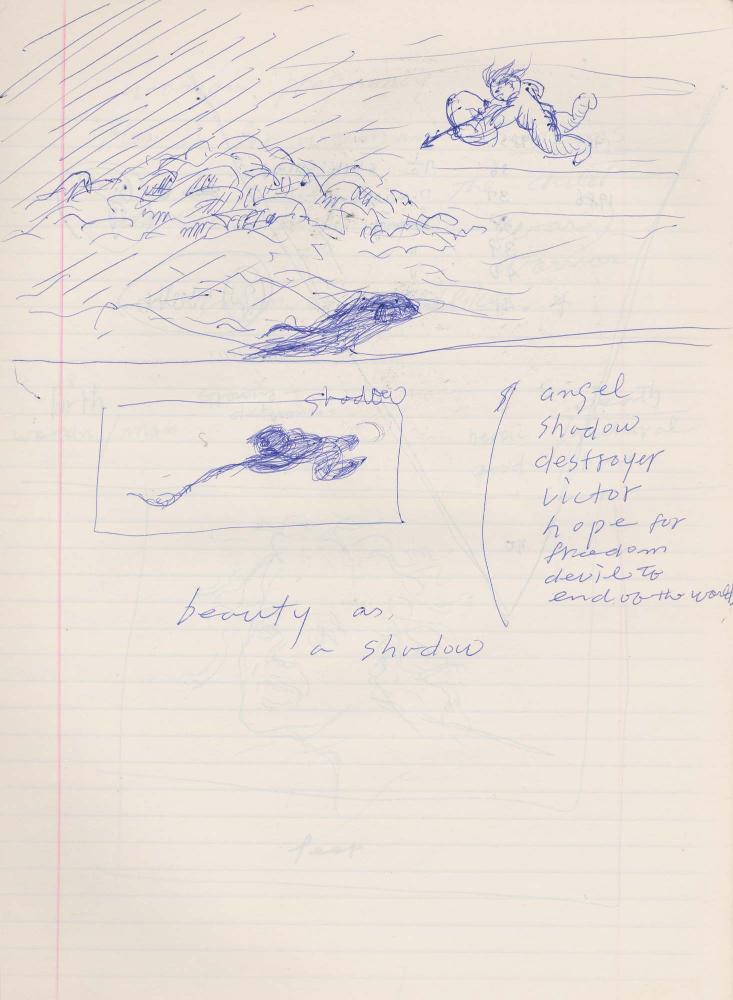 shadow
angel
shadow
destroyer
victor
hope for
freedom
devil to
end of the world
beauty as
a shadow